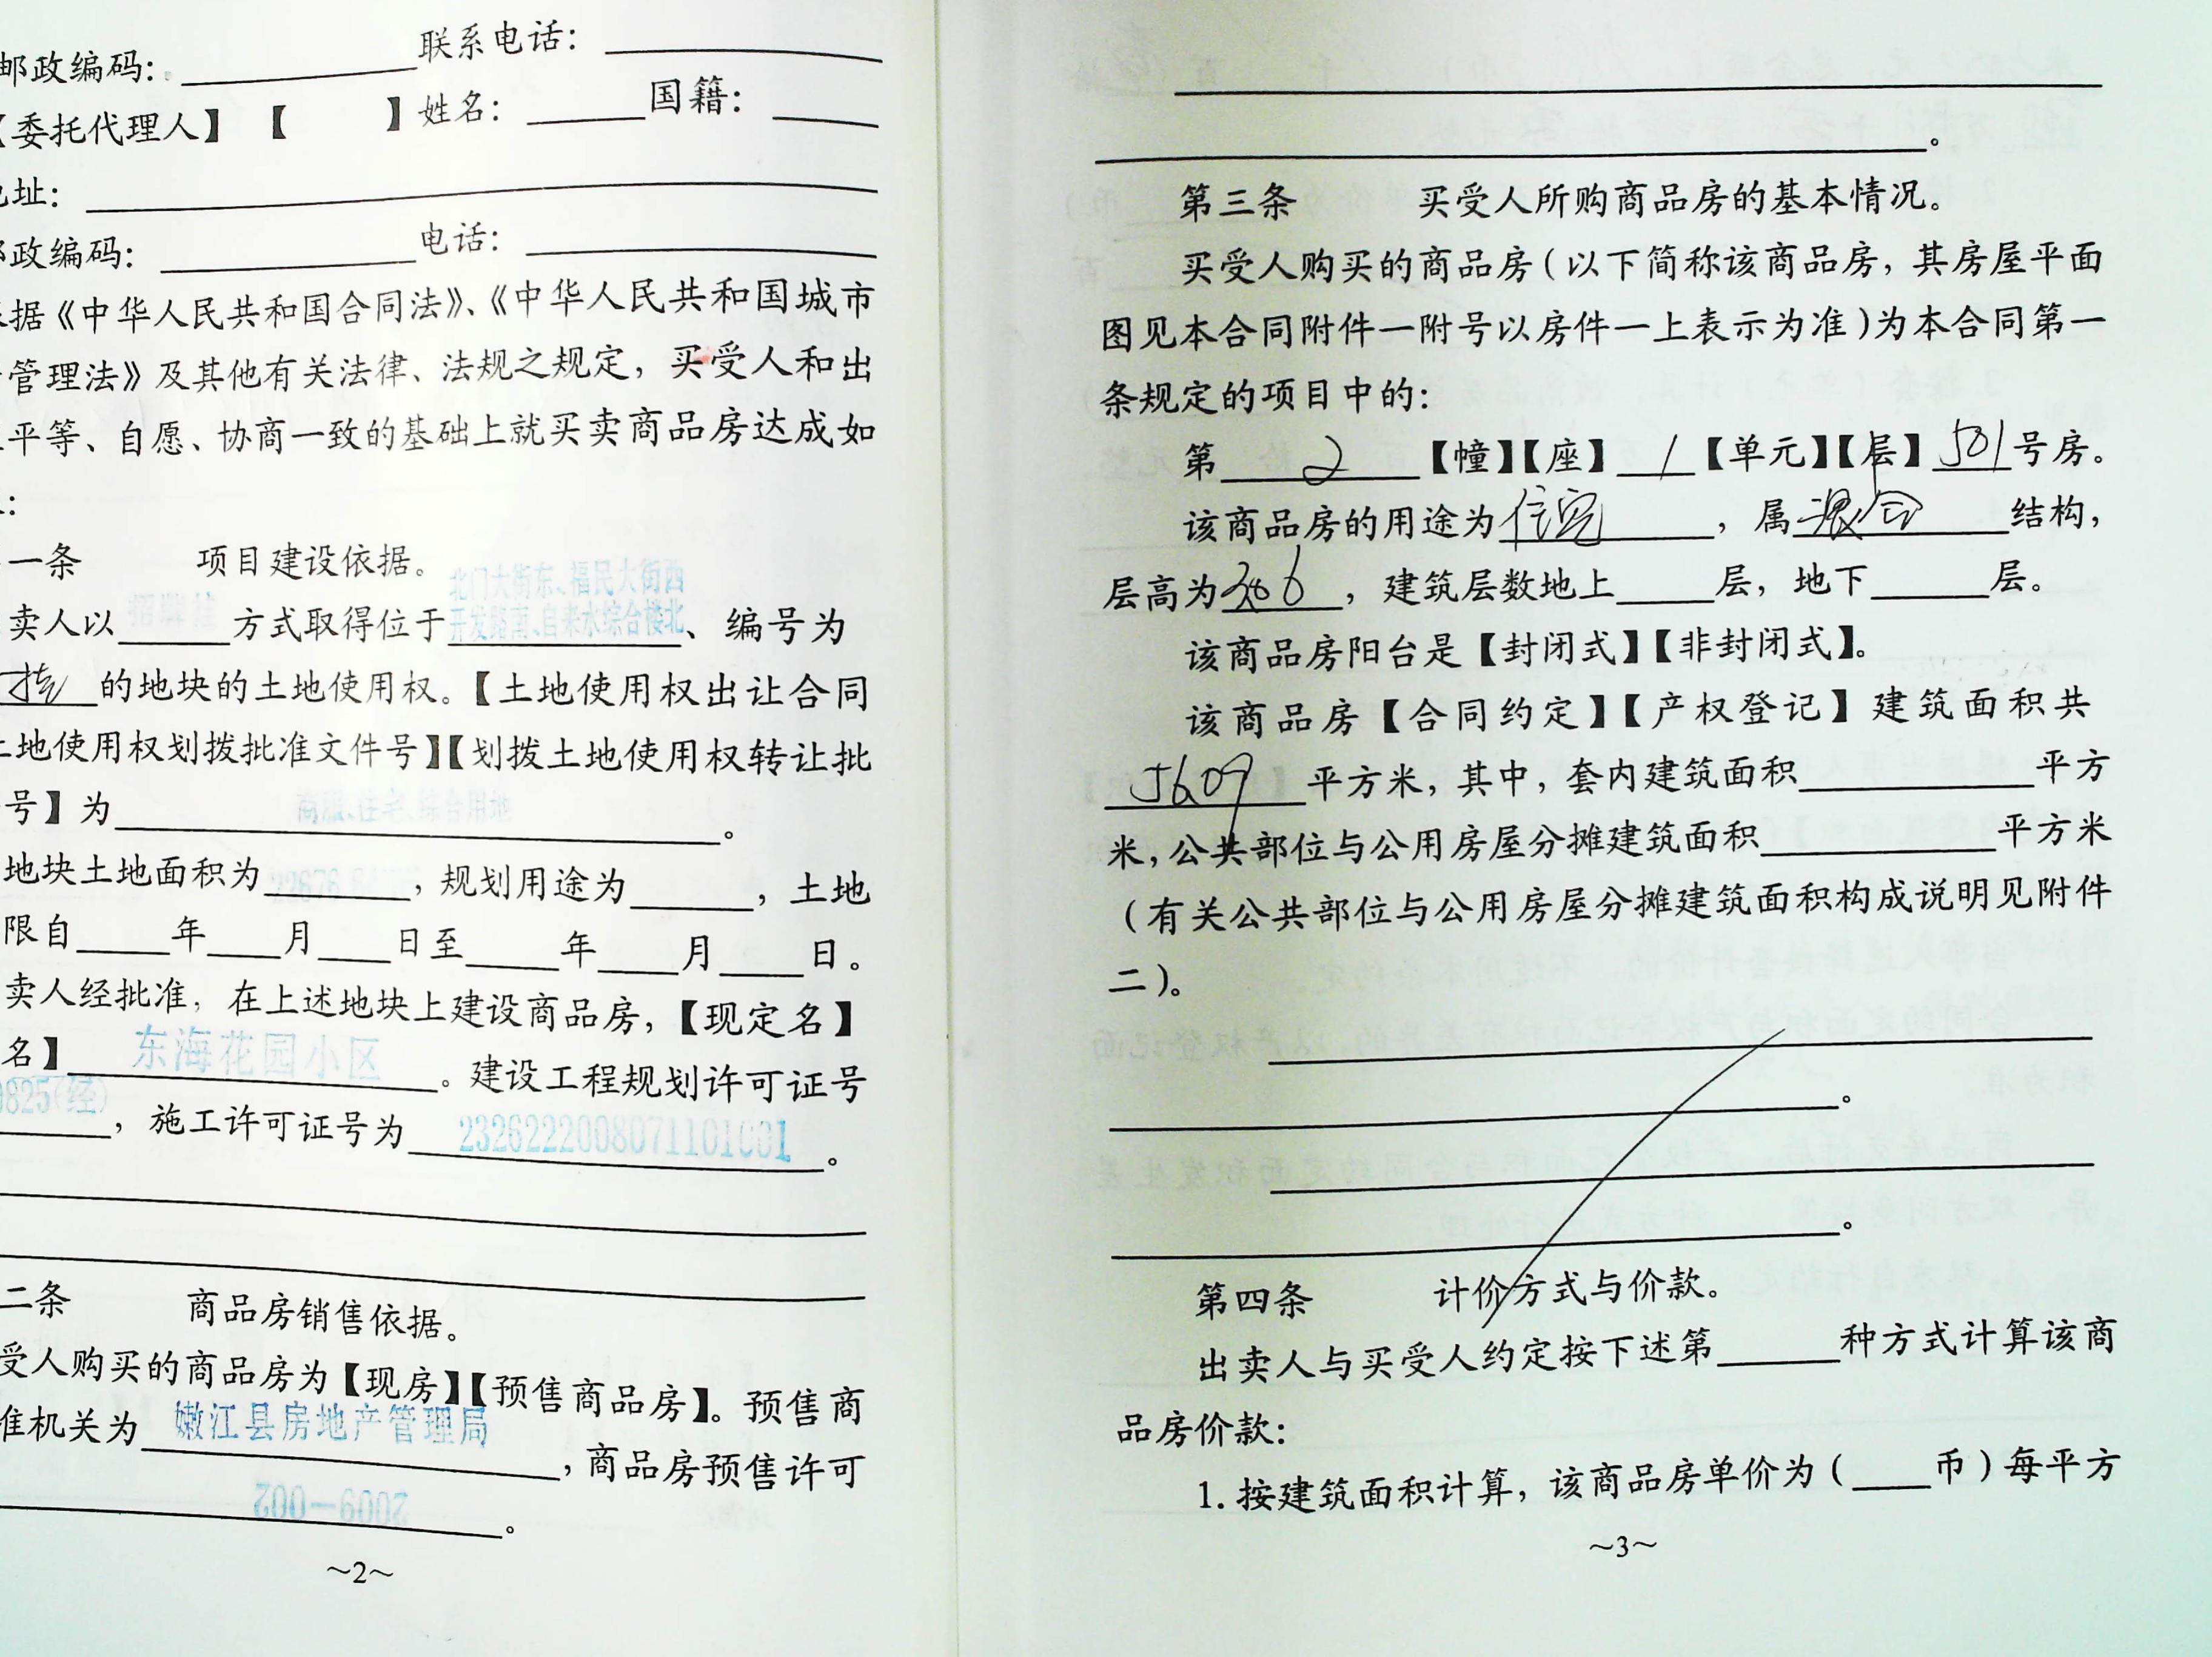 邮政编码: 联系电话:
【委托代理人】【 】姓名: 国籍:
址:
邮政编码: 电话:
据《中华人民共和国合同法》、《中华人民共和国城市
管理法》及其他有关法律、法规之规定,买受人和出
平等、自愿、协商一致的基础上就买卖商品房达成如
:
一条 项目建设依据。
北门大街东、福民大街西
卖人以招牌挂方式取得位于开发路南、自来水综合楼北、编号为
挂的地块的土地使用权。【土地使用权出让合同
土地使用权划拨批准文件号】【划拨土地使用权转让批
号】为 。
商服、住宅、综合用地
地块土地面积为 ,规划用途为 ,土地
限自 年 月 日至 年 月 日。
卖人经批准,在上述地块上建设商品房,【现定名】
名】东海花园小区。建设工程规划许可证号
0825(经),施工许可证号为2326222008071101001。
二条 商品房销售依据。
受人购买的商品房为【现房】【预售商品房】。预售商
准机关为嫩江县房地产管理局,商品房预售许可
2009-002。
~2~
。
第三条 买受人所购商品房的基本情况。
买受人购买的商品房(以下简称该商品房,其房屋平面
图见本合同附件一附号以房件一上表示为准)为本合同第一
条规定的项目中的:
第2【幢】【座】1【单元】【层】501号房。
该商品房的用途为住宅,属混合结构,
层高为 ,建筑层数地上 层,地下 层。
该商品房阳台是【封闭式】【非封闭式】。
该商品房【合同约定】【产权登记】建筑面积共
56.09平方米,其中,套内建筑面积 平方
米,公共部位与公用房屋分摊建筑面积 平方米
(有关公共部位与公用房屋分摊建筑面积构成说明见附件
二)。
。
。
第四条 计价方式与价款。
出卖人与买受人约定按下述第 种方式计算该商
品房价款:
1.按建筑面积计算,该商品房单价为( 币)每平方
~3~